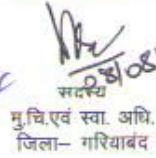 08/08/
सदस्य
मु.चि.एवं स्वा. अधि.
जिला– गरियाबंद